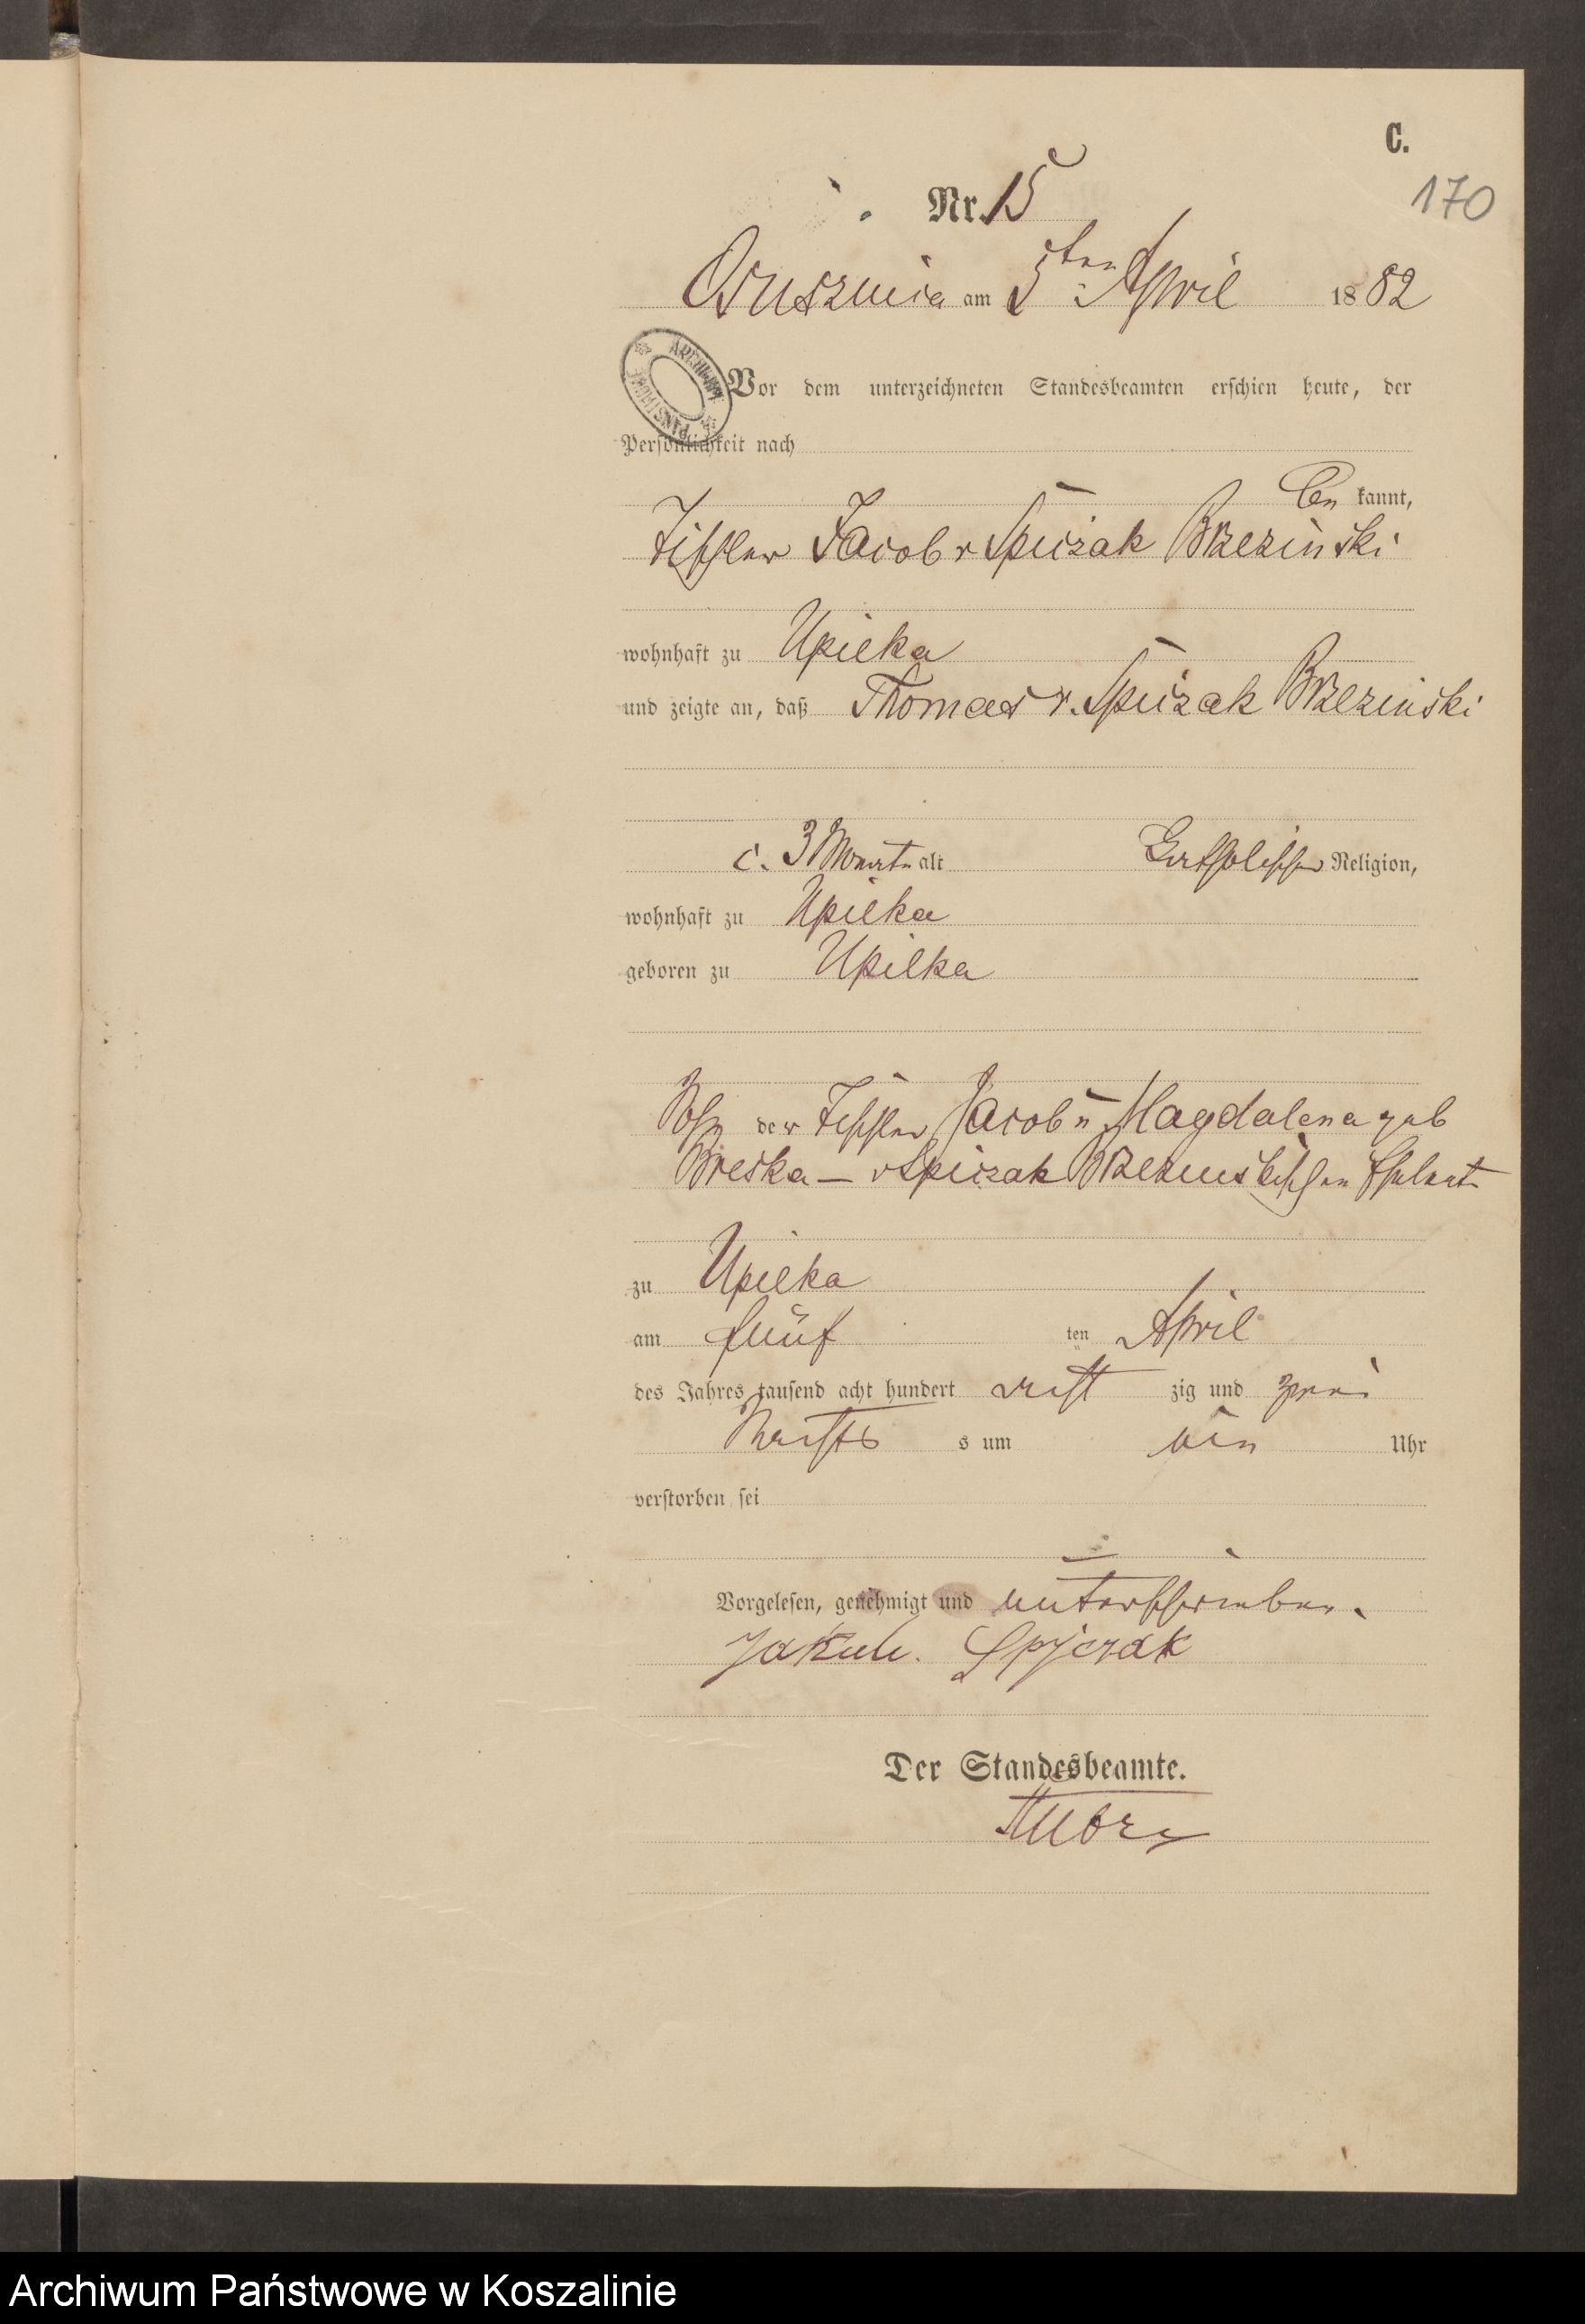 C.
170
Nr. 15
Ossusznica am 5ten April 1882
ARCHIWUM PAŃSTWOWE
Vor dem unterzeichneten Standesbeamten erschien heute, der
Persönlichkeit nach
be kannt,
Tischler Jacob v Spiczak Brzezinski
wohnhaft zu Upilka
und zeigte an, daß Thomas v. Spiczak Brzezinski
c. 3 Monate alt katholischer Religion,
wohnhaft zu Upilka
geboren zu Upilka
Sohn der Tischler Jacob u Magdalena geb
Breska – v Spiczak Brzezinskischen Eheleute
zu Upilka
am fünf ten April
des Jahres tausend acht hundert acht zig und zwei
Nachts s um ein Uhr
verstorben sei
Vorgelesen, genehmigt und unterschrieben.
Jakub. Spiczak
Der Standesbeamte.
Archiwum Państwowe w Koszalinie